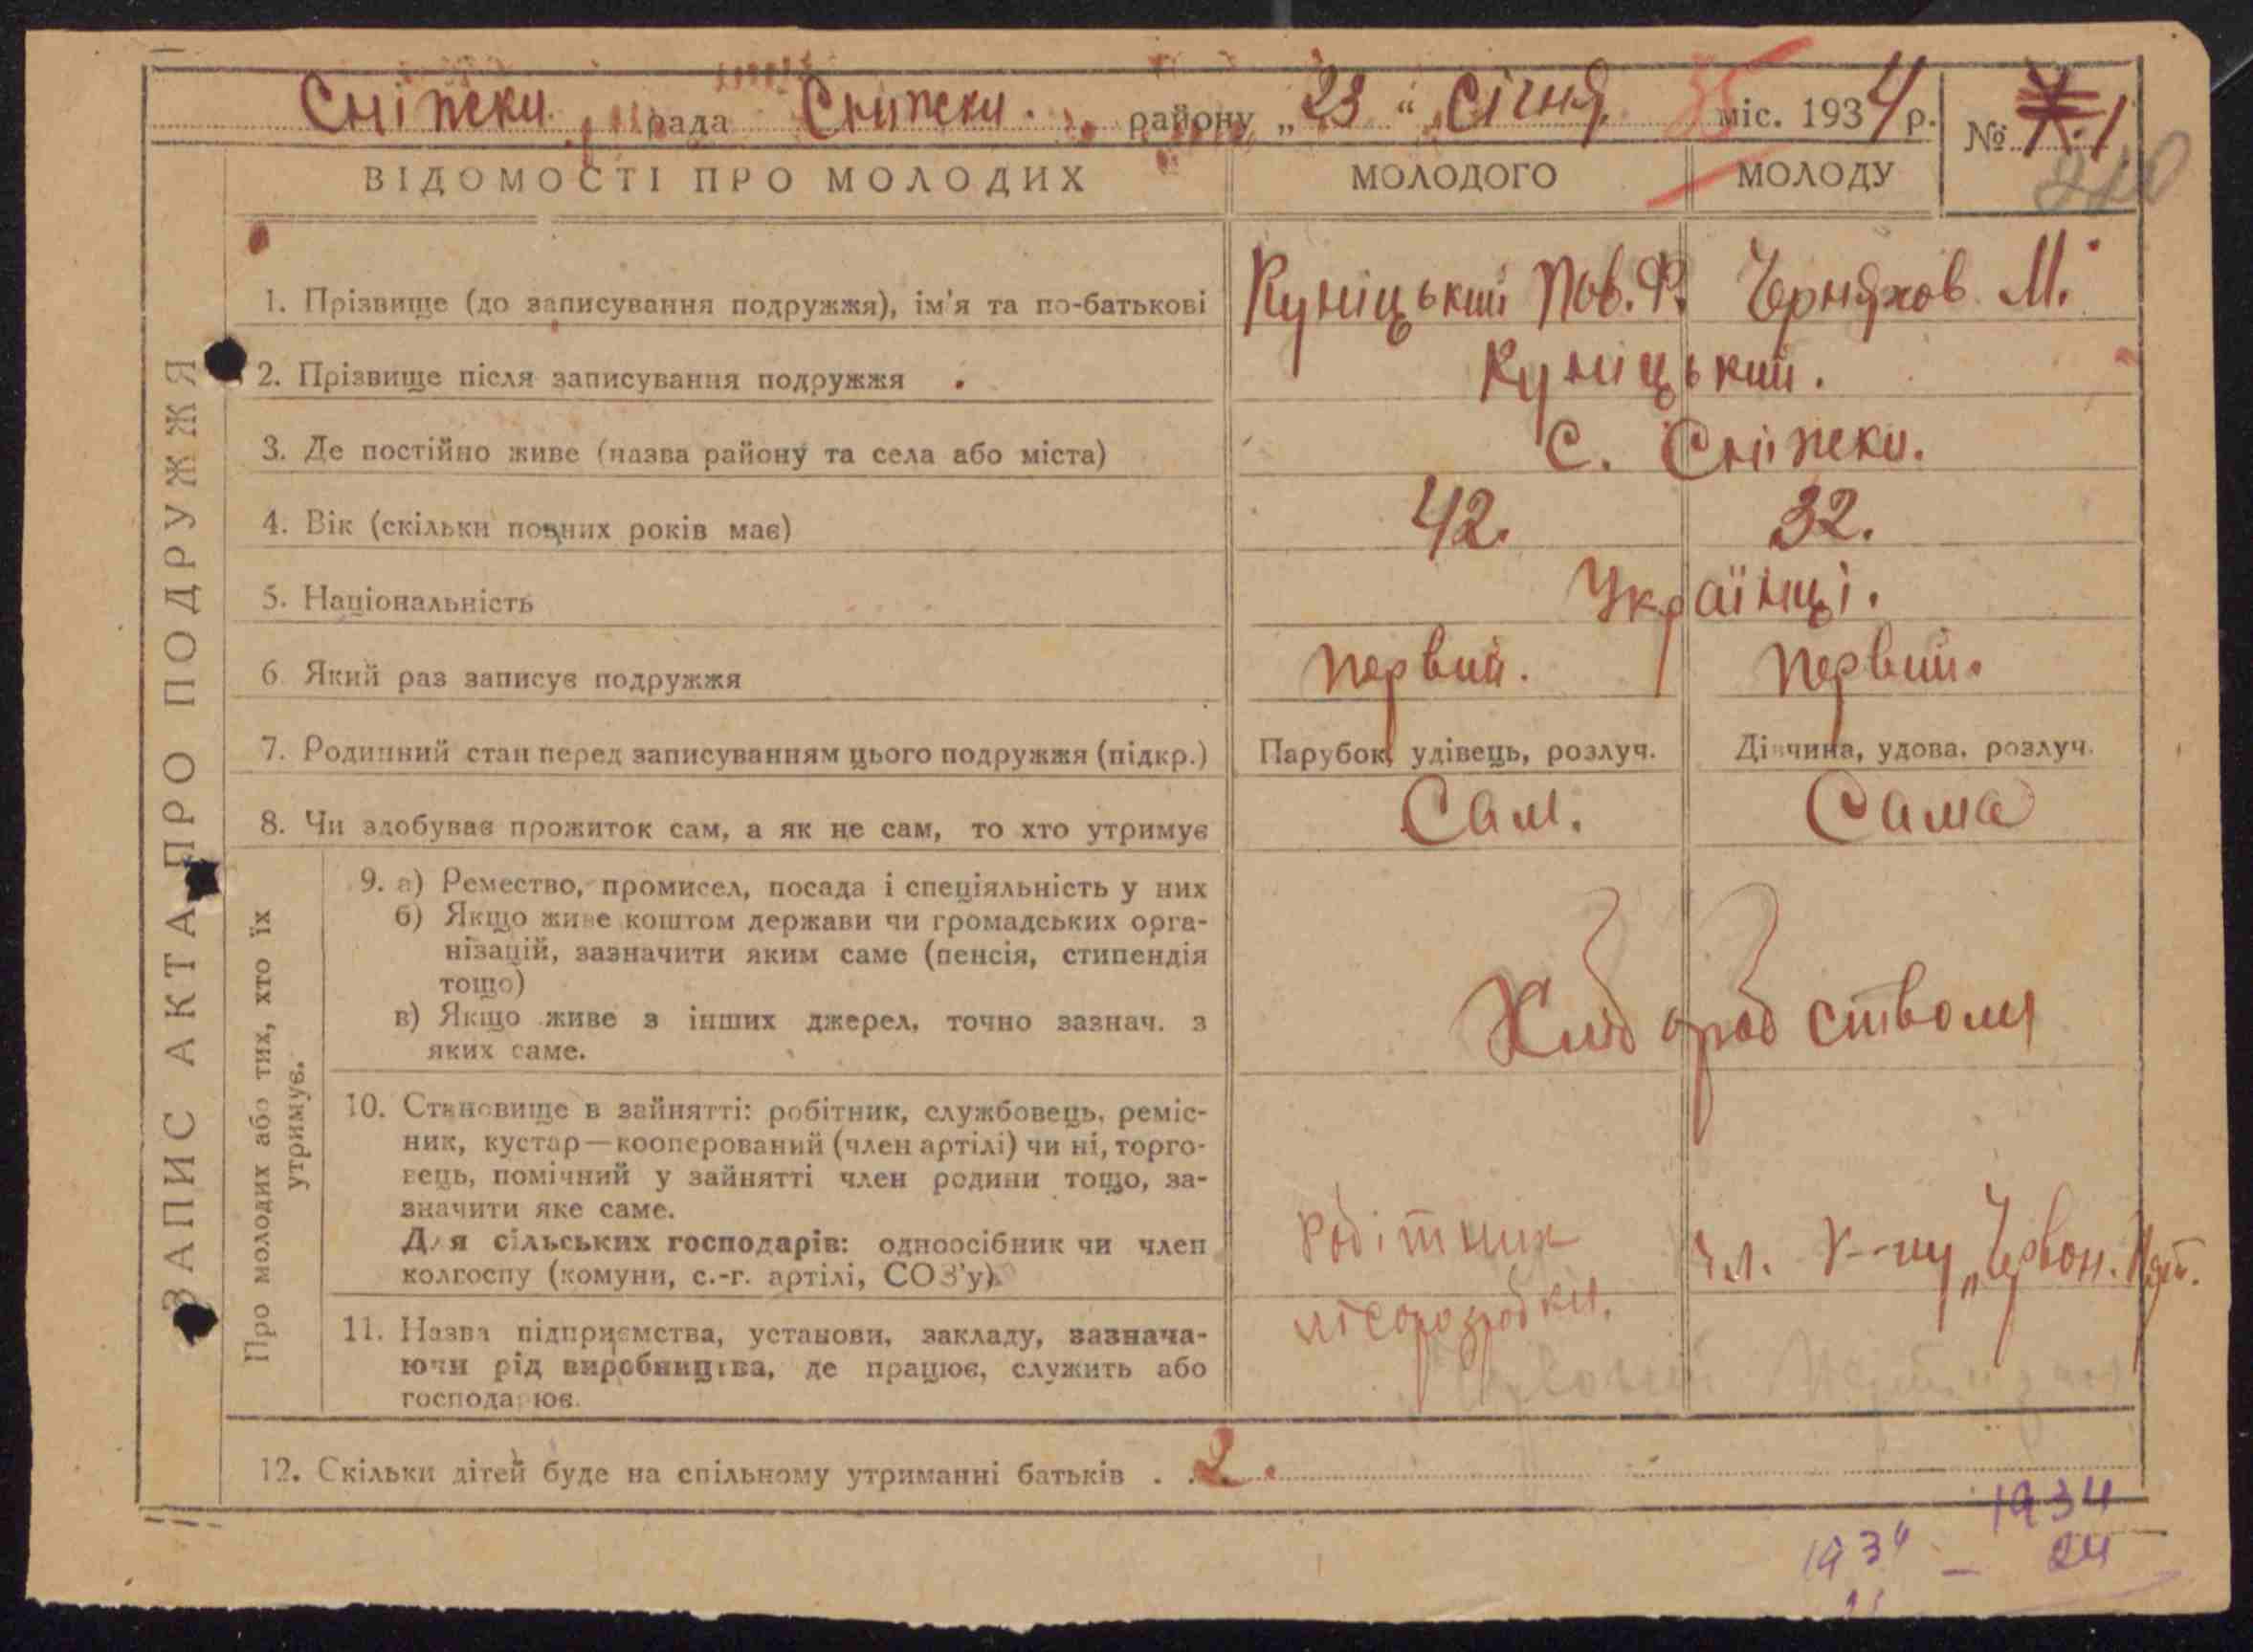 Сніпеки. рада Сніпеки. району „23“ Січня 35 міс. 1934 р. № 1
ВІДОМОСТІ ПРО МОЛОДИХ МОЛОДОГО МОЛОДУ
ЗАПИС АКТА ПРО ПОДРУЖЖЯ
1. Прізвище (до записування подружжя), ім'я та по-батькові Куніцький Пав. Ф. Черняхов М.
2. Прізвище після записування подружжя Куніцький.
3. Де постійно живе (назва району та села або міста) С. Сніпеки.
4. Вік (скільки повних років має) 42. 32.
5. Національність Українці.
6. Який раз записує подружжя первий. первий.
7. Родинний стан перед записуванням цього подружжя (підкр.) Парубок, удівець, розлуч. Дівчина, удова, розлуч.
8. Чи здобуває прожиток сам, а як не сам, то хто утримує Сам. Сама
Про молодих або тих, хто їх
утримує.
9. а) Ремество, промисел, посада і спеціяльність у них
б) Якщо живе коштом держави чи громадських орга-
нізацій, зазначити яким саме (пенсія, стипендія
тощо)
в) Якщо живе з інших джерел, точно зазнач. з
яких саме.
Хлібороб ством
10. Становище в зайнятті: робітник, службовець, реміс-
ник, кустар—кооперований (член артілі) чи ні, торго-
вець, помічний у зайнятті член родини тощо, за-
значити яке саме.
Для сільських господарів: одноосібник чи член
колгоспу (комуни, с.-г. артілі, СОЗ'у).
робітник
лісорозробки.
чл. к-пу „Червон. Парт.
11. Назва підприємства, установи, закладу, зазнача-
ючи рід виробництва, де працює, служить або
господарює.
12. Скільки дітей буде на спільному утриманні батьків . . 2.
1934
1934 – 24